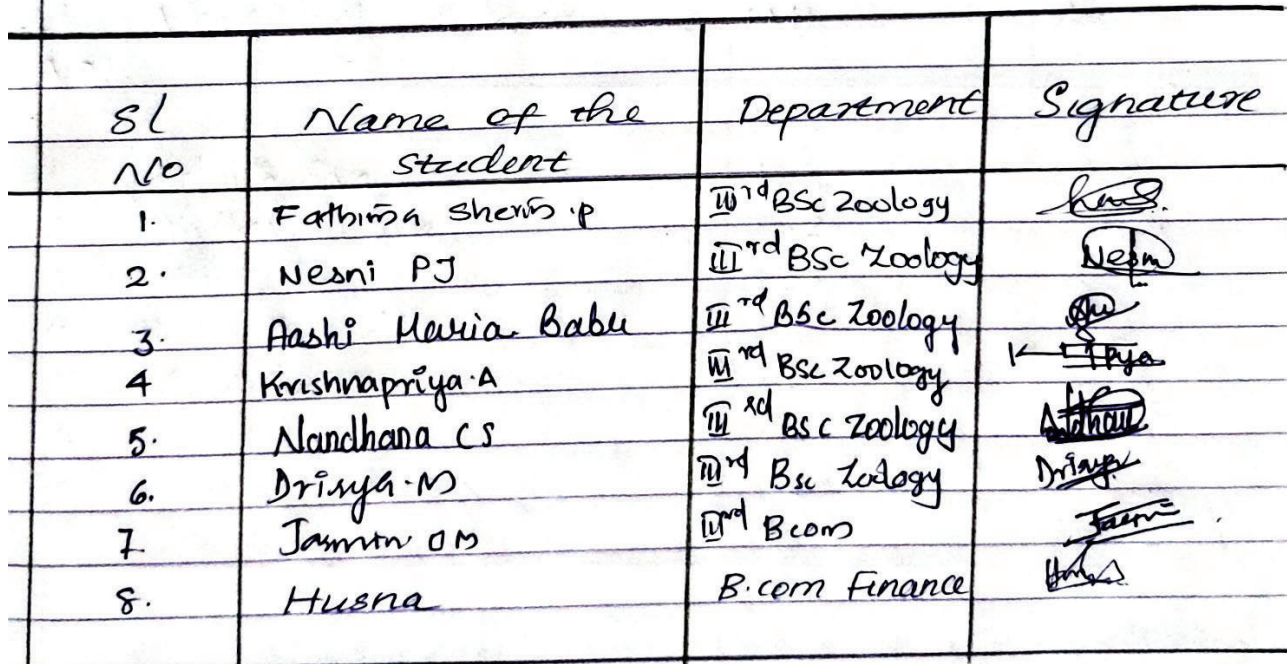 Sl Name of the Department Signature
No Student
1. Fathima Sherin .P IIIrd BSc Zoology
2. Nesni PJ IIIrd BSc Zoology Nesni
3. Aashi Maria Babu IIIrd BSc Zoology
4 Krishnapriya.A IIIrd BSc Zoology
5. Nandhana CS IIIrd BSc Zoology
6. Drisya.M IIIrd Bsc Zoology Drisya
7. Jasmin OM Bcom
8. Husna B.com Finance